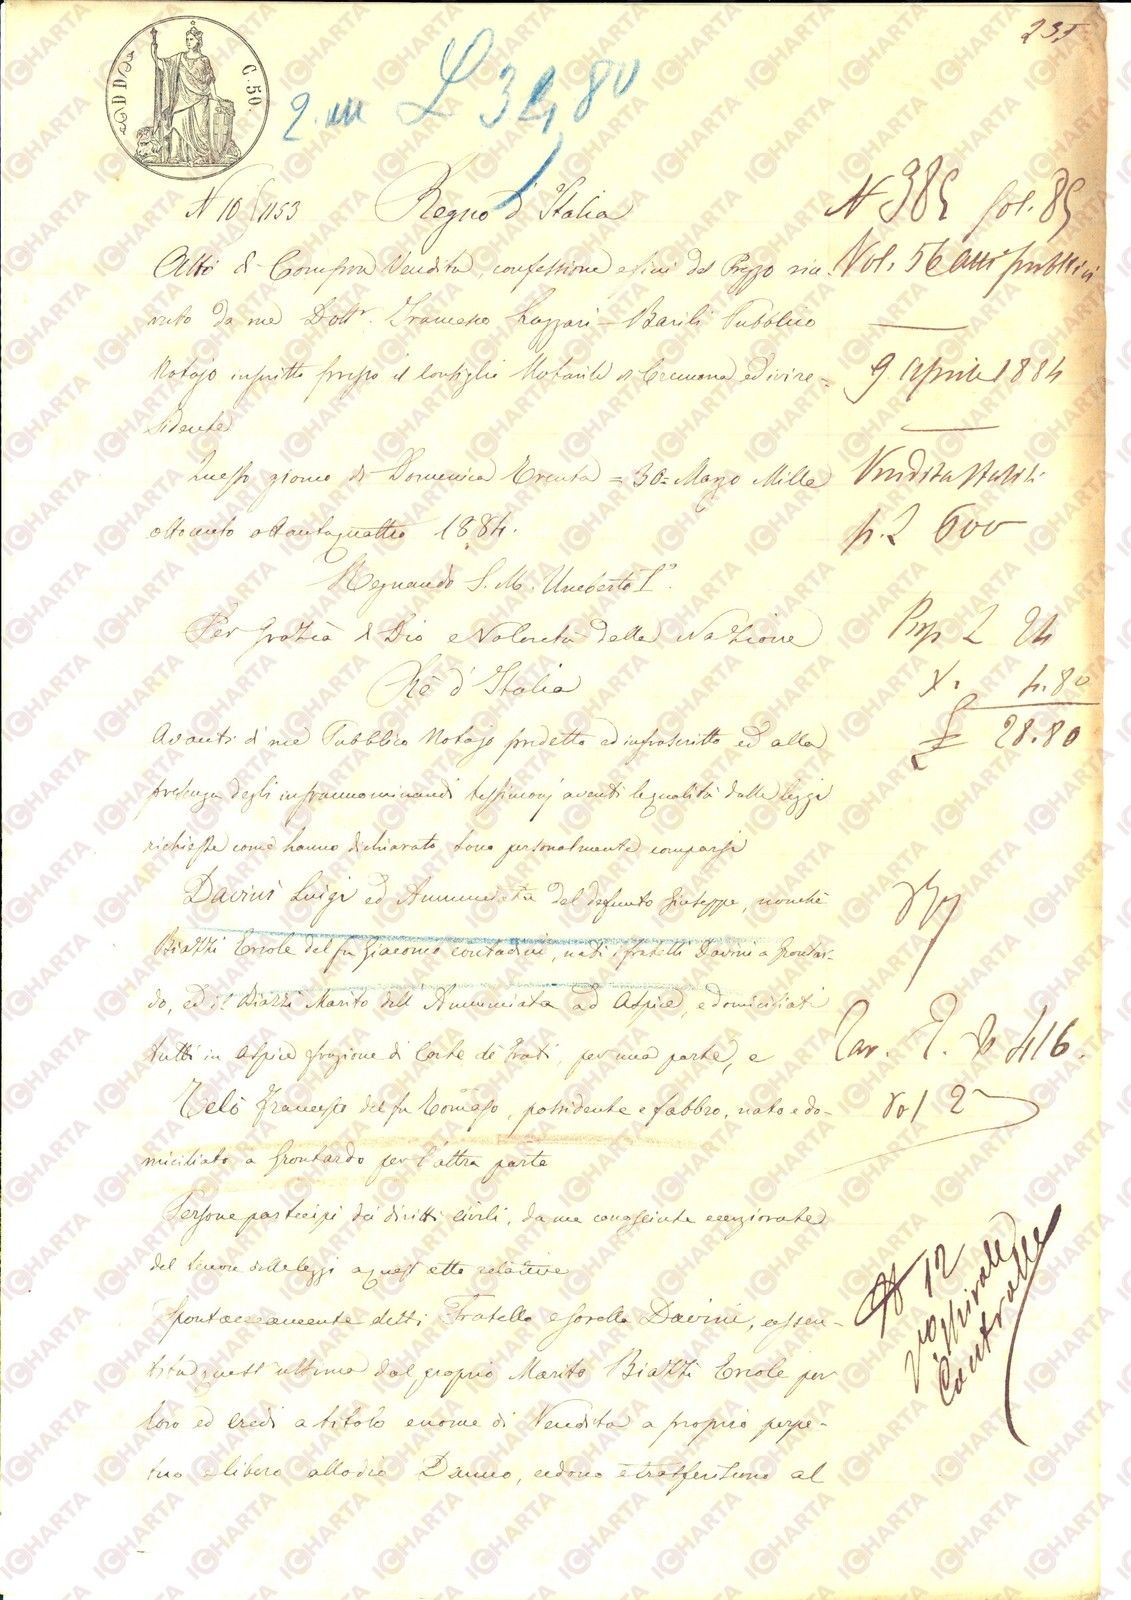 235
C. 50.
2.
L 34,80
N 10/1153
Regno d'Italia
N 385 fol. 85
Vol. 56 atti pubblici
Atto di Compra Vendita, confessione e fini del Prezzo rice-
vuto da me Dott.r Francesco Lazzari-Barili Pubblico
Notajo inscritto presso il Consiglio Notarile di Cremona ed ivi re-
sidente
9. Aprile 1884
Questo giorno di Domenica Trenta = 30 = Marzo Mille
ottocento ottantaquattro 1884.
Vendita stabili
p. L 600
Regnando S. M. Umberto I°
Per grazia di Dio e Volontà della Nazione
Rè d'Italia
Prop L 24
4.80
28.80
Avanti di me Pubblico Notajo predetto ed infrascritto ed alla
presenza degli infranominandi testimonj aventi le qualità dalle leggi
richieste come hanno dichiarato sono personalmente comparsi
Davini Luigi ed Annunciata del defunto Giuseppe, nonchè
Biazzi Ercole del fu Giacomo contadini, nati i fratelli Davini a Grontar-
do, ed il Biazzi Marito dell'Annunciata ad Aspice, e domiciliati
tutti in Aspice frazione di Corte de' Frati, per una parte, e
Telò Francesco del fu Tomaso, possidente e fabbro, nato e do-
miciliato a Grontardo per l'altra parte
Tav. 416.
vol 2
Persone partecipi dei diritti civili, da me conosciute eccezionate
del tenore delle leggi a quest'atto relative
Spontaneamente detti Fratello e sorella Davini, assen-
tita quest'ultima dal proprio Marito Biazzi Ercole per
loro ed eredi a titolo e nome di Vendita a proprio perpe-
tuo e libero allodio Danno, cedono e trasferiscono al
N 12